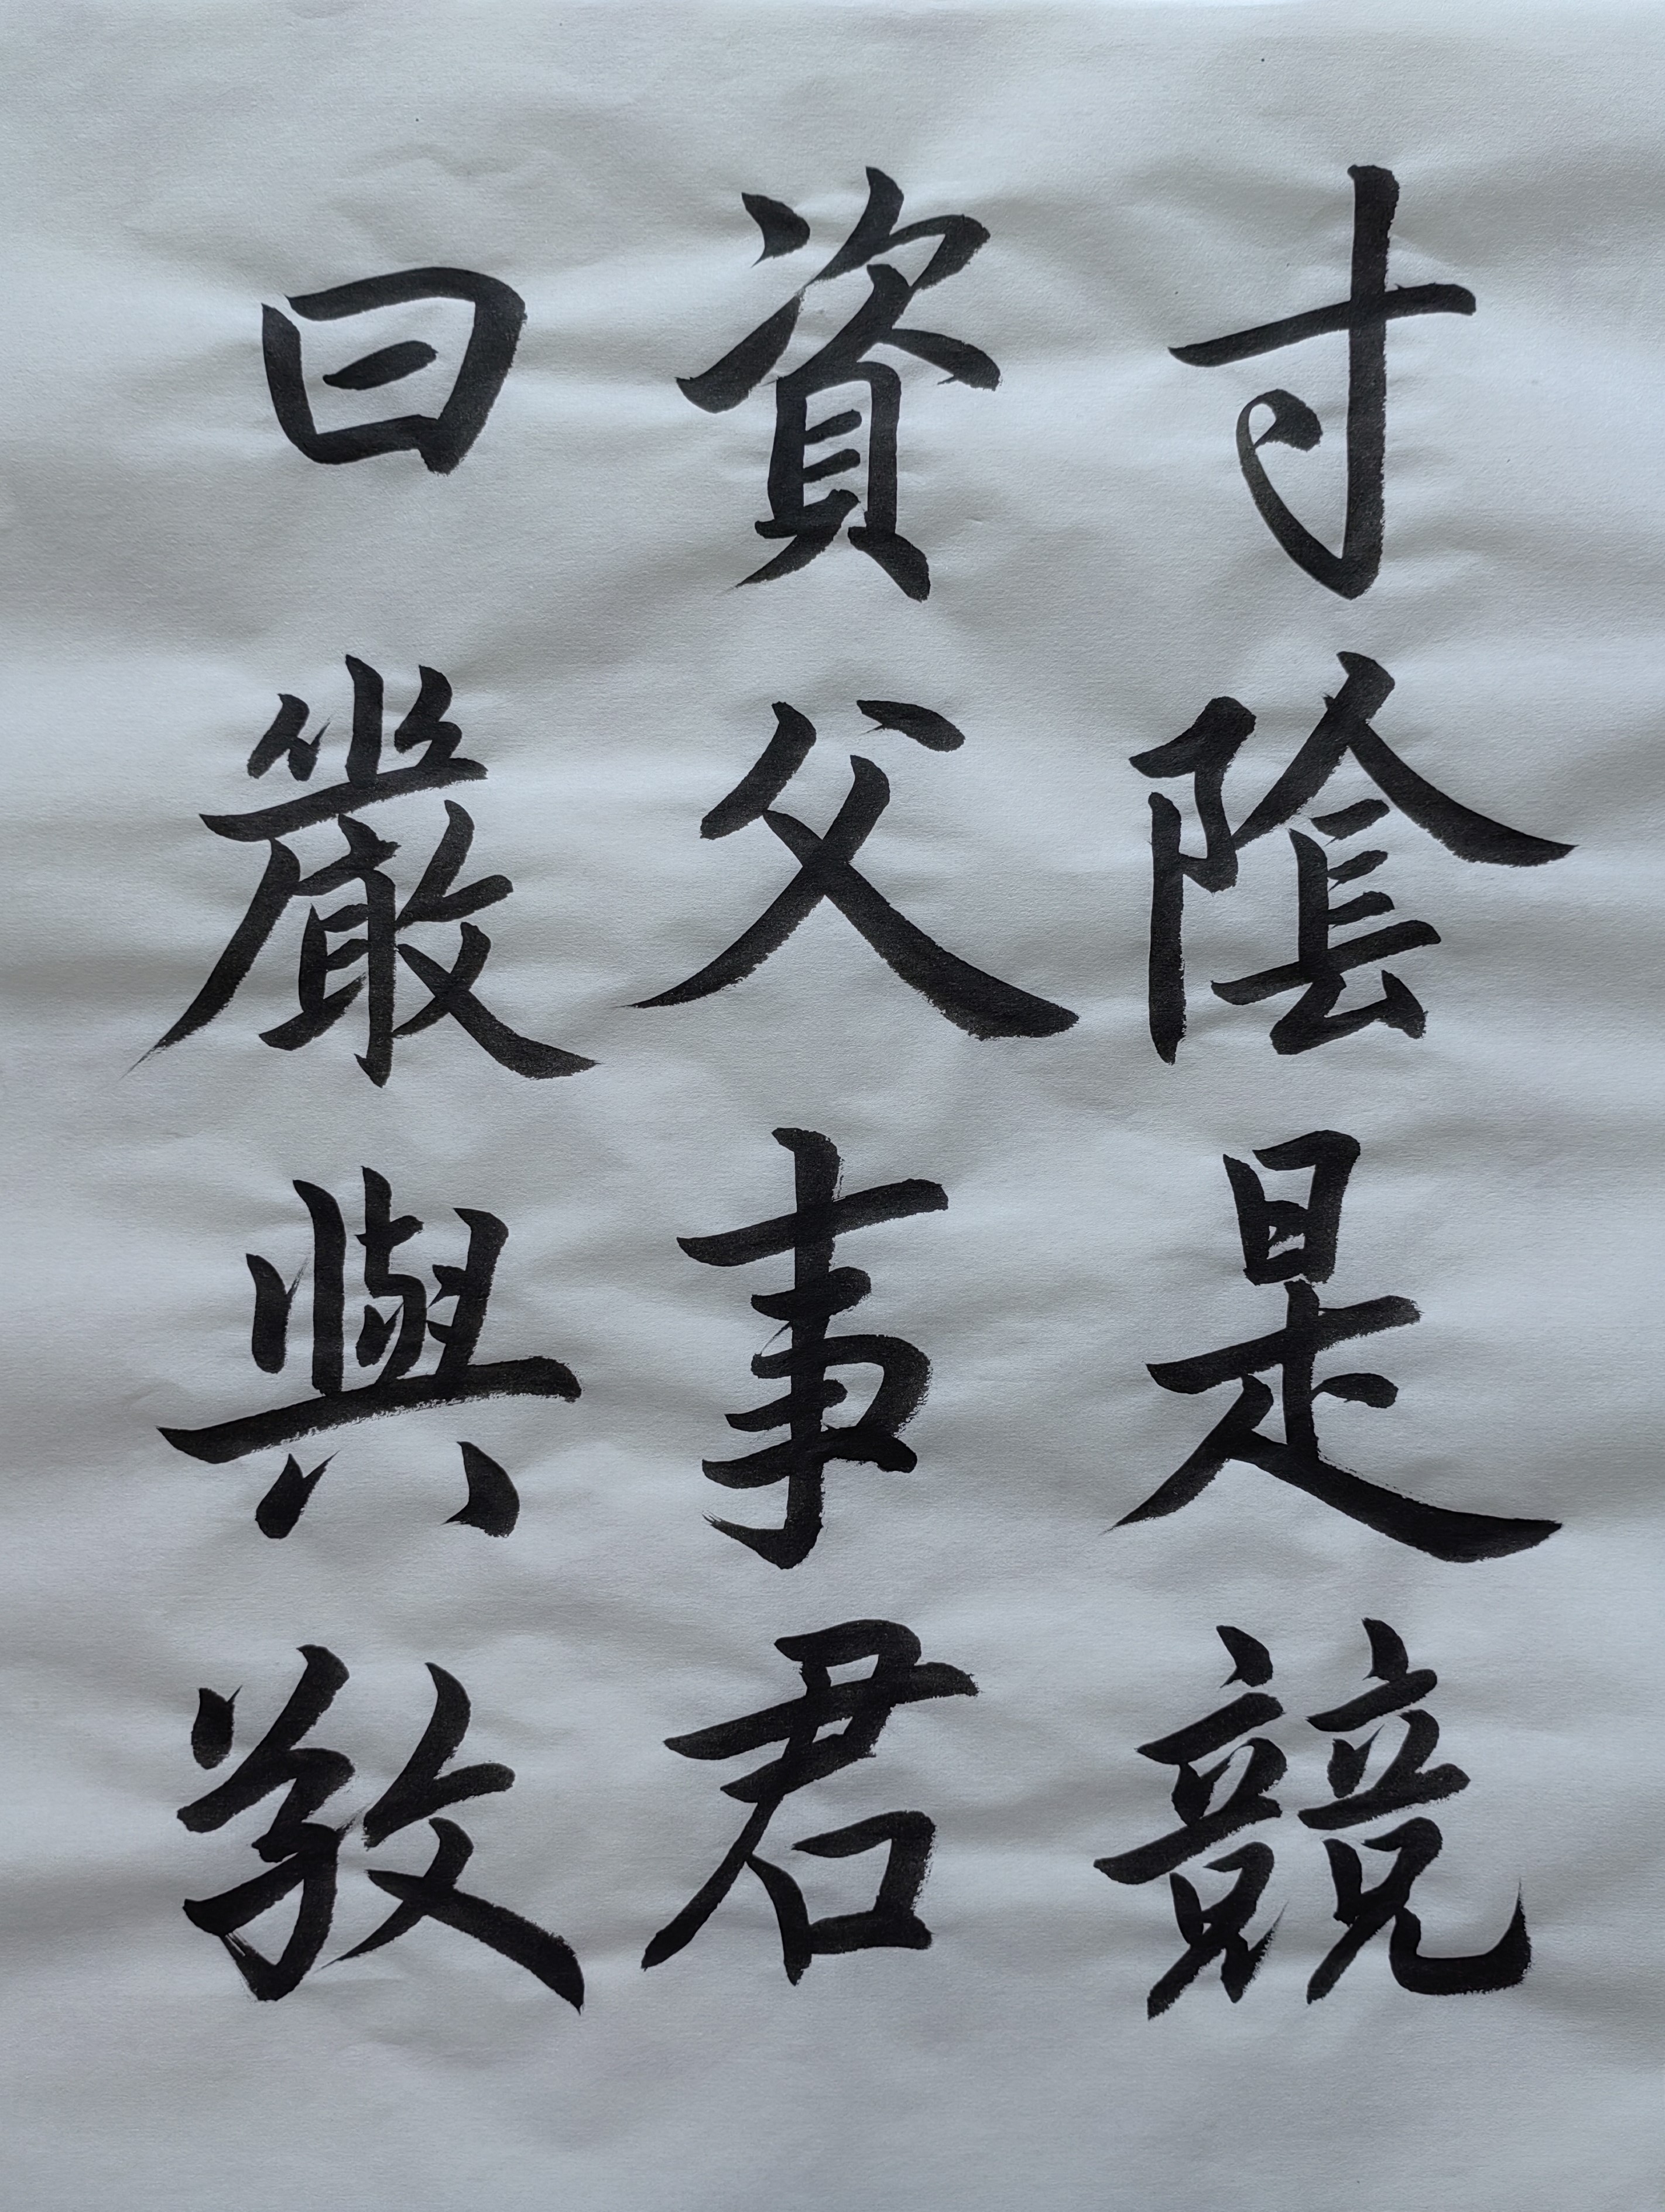 寸陰是競
資父事君
曰嚴與敬